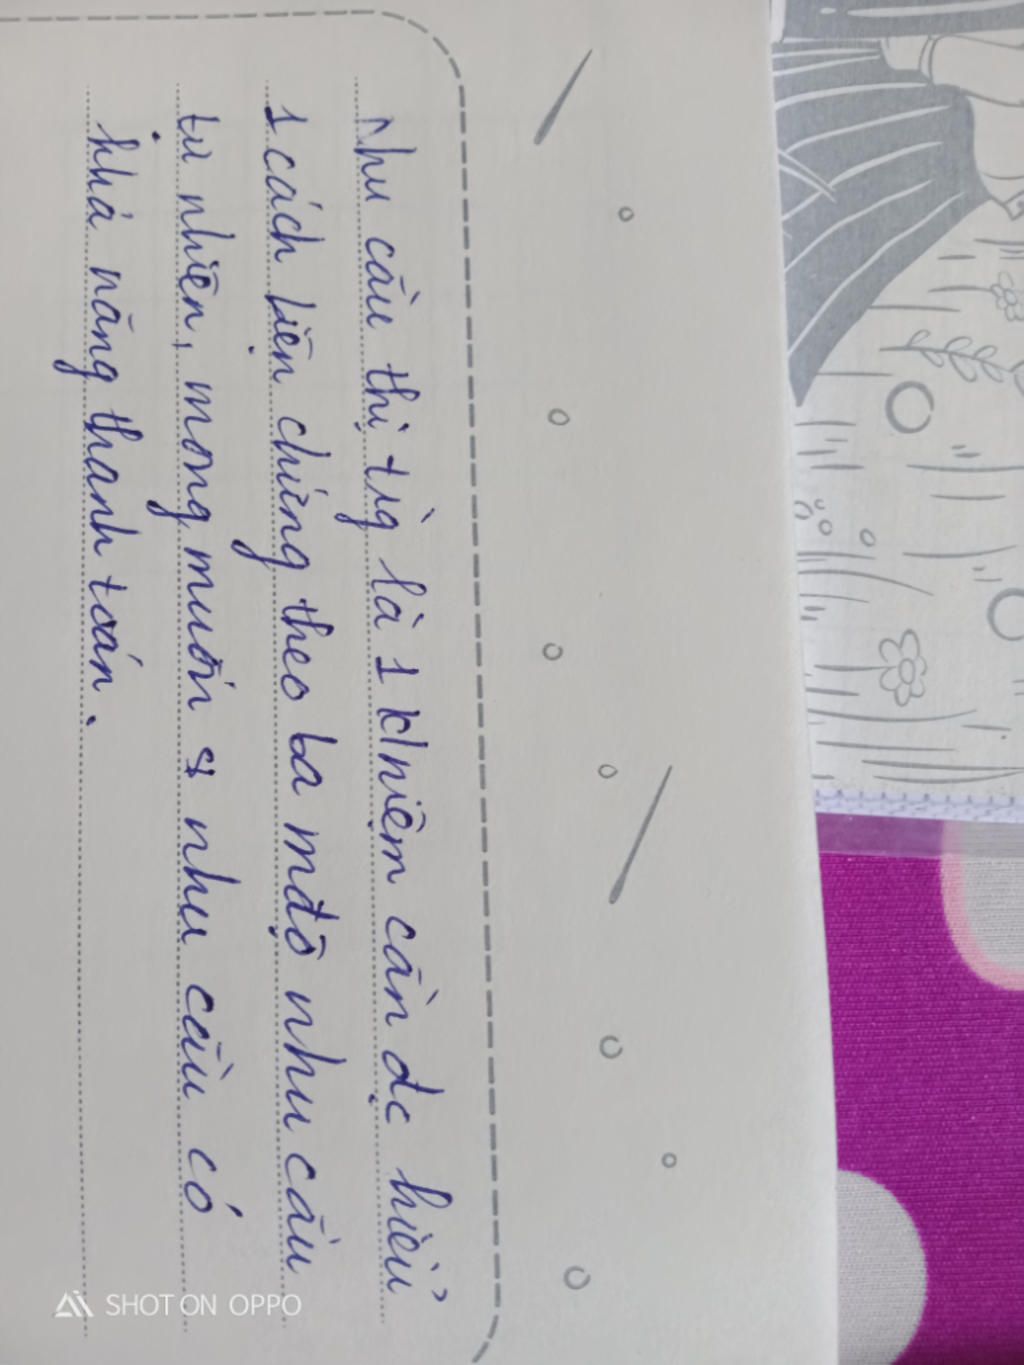 Nhu cầu thị trg là 1 k/niệm cần đc hiểu
1 cách biện chứng theo ba mđộ nhu cầu
tự nhiên, mong muốn & nhu cầu có
khả năng thanh toán.
SHOT ON OPPO